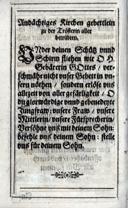 Andächtiges Kirchen gebettlein
zu der Trösterin aller
betrübten.
Under deinen Schütz und
Schirm fliehen wir O H.
Gebärerin Gottes / ver-
schmähe nicht unser Gebett in un-
sern nöthen / sondern erlöse uns
allzeit von aller gefärligkeit / O
du glorwürdige und gebenedeyte
Jungfraw / unsere Fraw / unsere
Mittlerin / unsere Fürsprecherin
Versöhne uns mit deinem Sohn /
befehle uns deinem Sohn / stelle
uns für deinem Sohn.